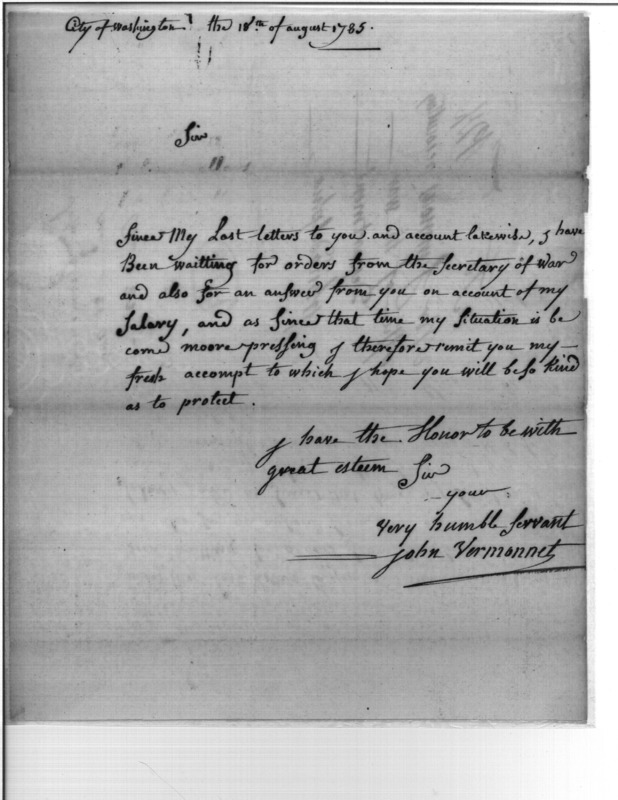 City of Washington the 18th of august 1785.
Sir
Since My Last letters to you and account likewise, j have
Been waitting for orders from the Secretary of War
and also for an answer from you on account of my
Salary, and as Since that time my Situation is be
come moore pressing j therefore remit you my
fresh accompt to which j hope you will be so kind
as to protect.
j have the Honor to be with
great esteem Sir
your
Very humble Servant
John Vermonnet